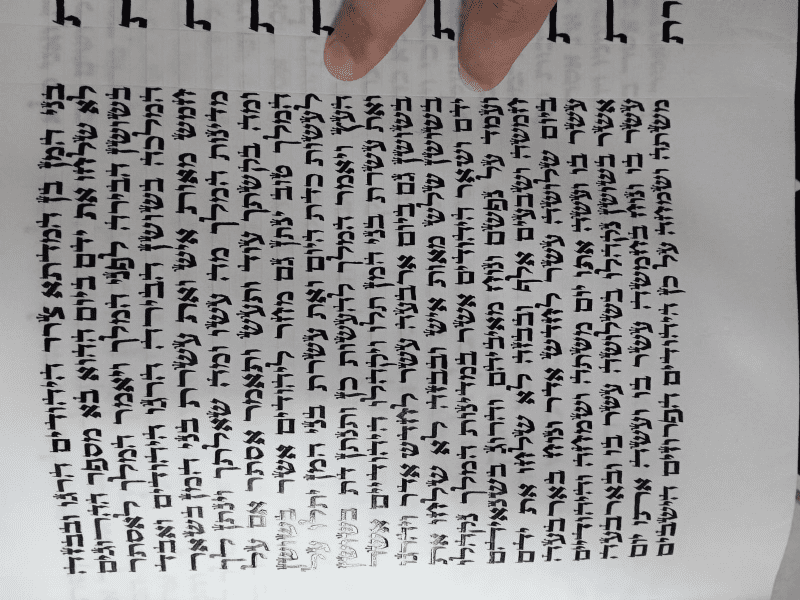 בני המן בן המדתא צרר היהודים הרגו ובבזה
לא שלחו את ידם ביום ההוא בא מספר ההרוגים
בשושן הבירה לפני המלך ויאמר המלך לאסתר
המלכה בשושן הבירה הרגו היהודים ואבד
חמש מאות איש ואת עשרת בני המן בשאר
מדינות המלך מה עשו ומה שאלתך וינתן לך
ומה בקשתך עוד ותעש ותאמר אסתר אם על
המלך טוב ינתן גם מחר ליהודים אשר בשושן
לעשות כדת היום ואת עשרת בני המן יתלו על
העץ ויאמר המלך להעשות כן ותנתן דת בשושן
ואת עשרת בני המן תלו ויקהלו היהודים אשר
בשושן גם ביום ארבעה עשר לחודש אדר ויהרגו
בשושן שלש מאות איש ובבזה לא שלחו את
ידם ושאר היהודים אשר במדינות המלך נקהלו
ועמד על נפשם ונוח מאיביהם והרוג בשנאיהם
חמשה ושבעים אלף ובבזה לא שלחו את ידם
ביום שלושה עשר לחדש אדר ונוח בארבעה
עשר בו ועשה אתו יום משתה ושמחה והיהודים
אשר בשושן נקהלו בשלושה עשר בו ובארבעה
עשר בו ונוח בחמשה עשר בו ועשה אתו יום
משתה ושמחה על כן היהודים הפרוזים הישבים